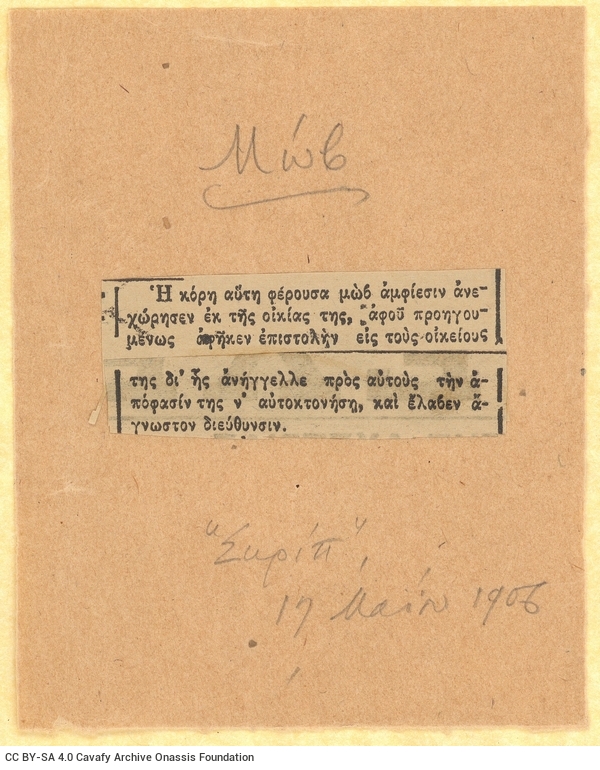 Μώβ
Ἡ κόρη αὕτη φέρουσα μὼβ ἀμφίεσιν ἀνε-
χώρησεν ἐκ τῆς οἰκίας της, ἀφοῦ προηγου-
μένως ἀφῆκεν ἐπιστολὴν εἰς τοὺς οἰκείους
της δι' ἧς ἀνήγγελλε πρὸς αὐτοὺς τὴν ἀ-
πόφασίν της ν' αὐτοκτονήσῃ, καὶ ἔλαβεν ἄ-
γνωστον διεύθυνσιν.
"Σκρίπ",
17 Μαΐου 1906
CC BY-SA 4.0 Cavafy Archive Onassis Foundation